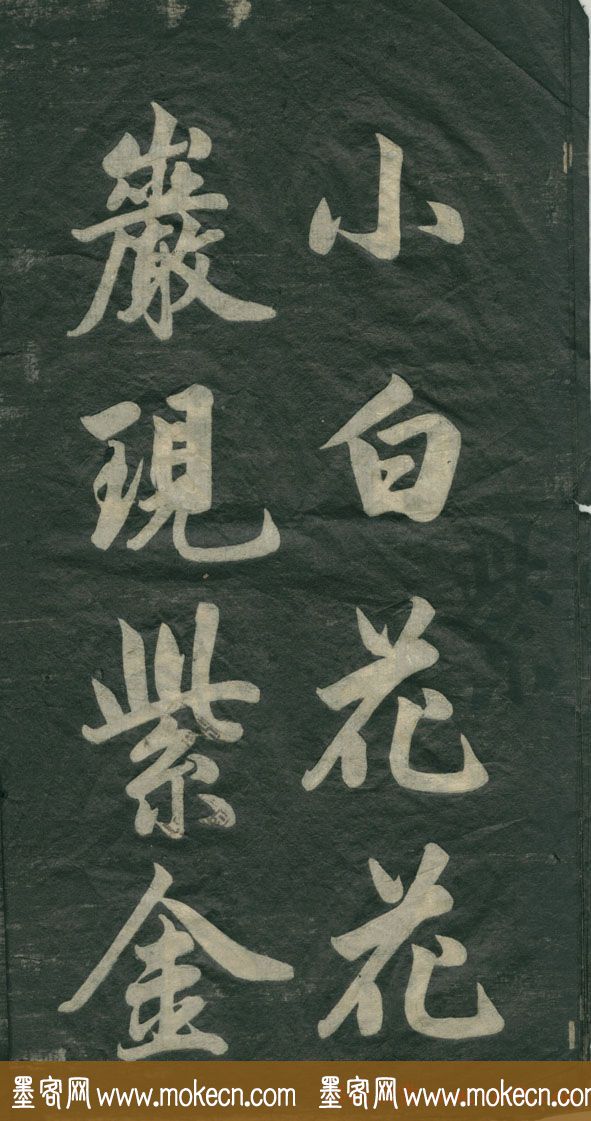 小白花花
巖現紫金
墨客网 www.mokecn.com 墨客网 www.mokecn.com